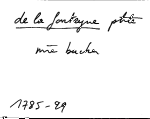 de la fontayne phis
mre bucher
1785-89